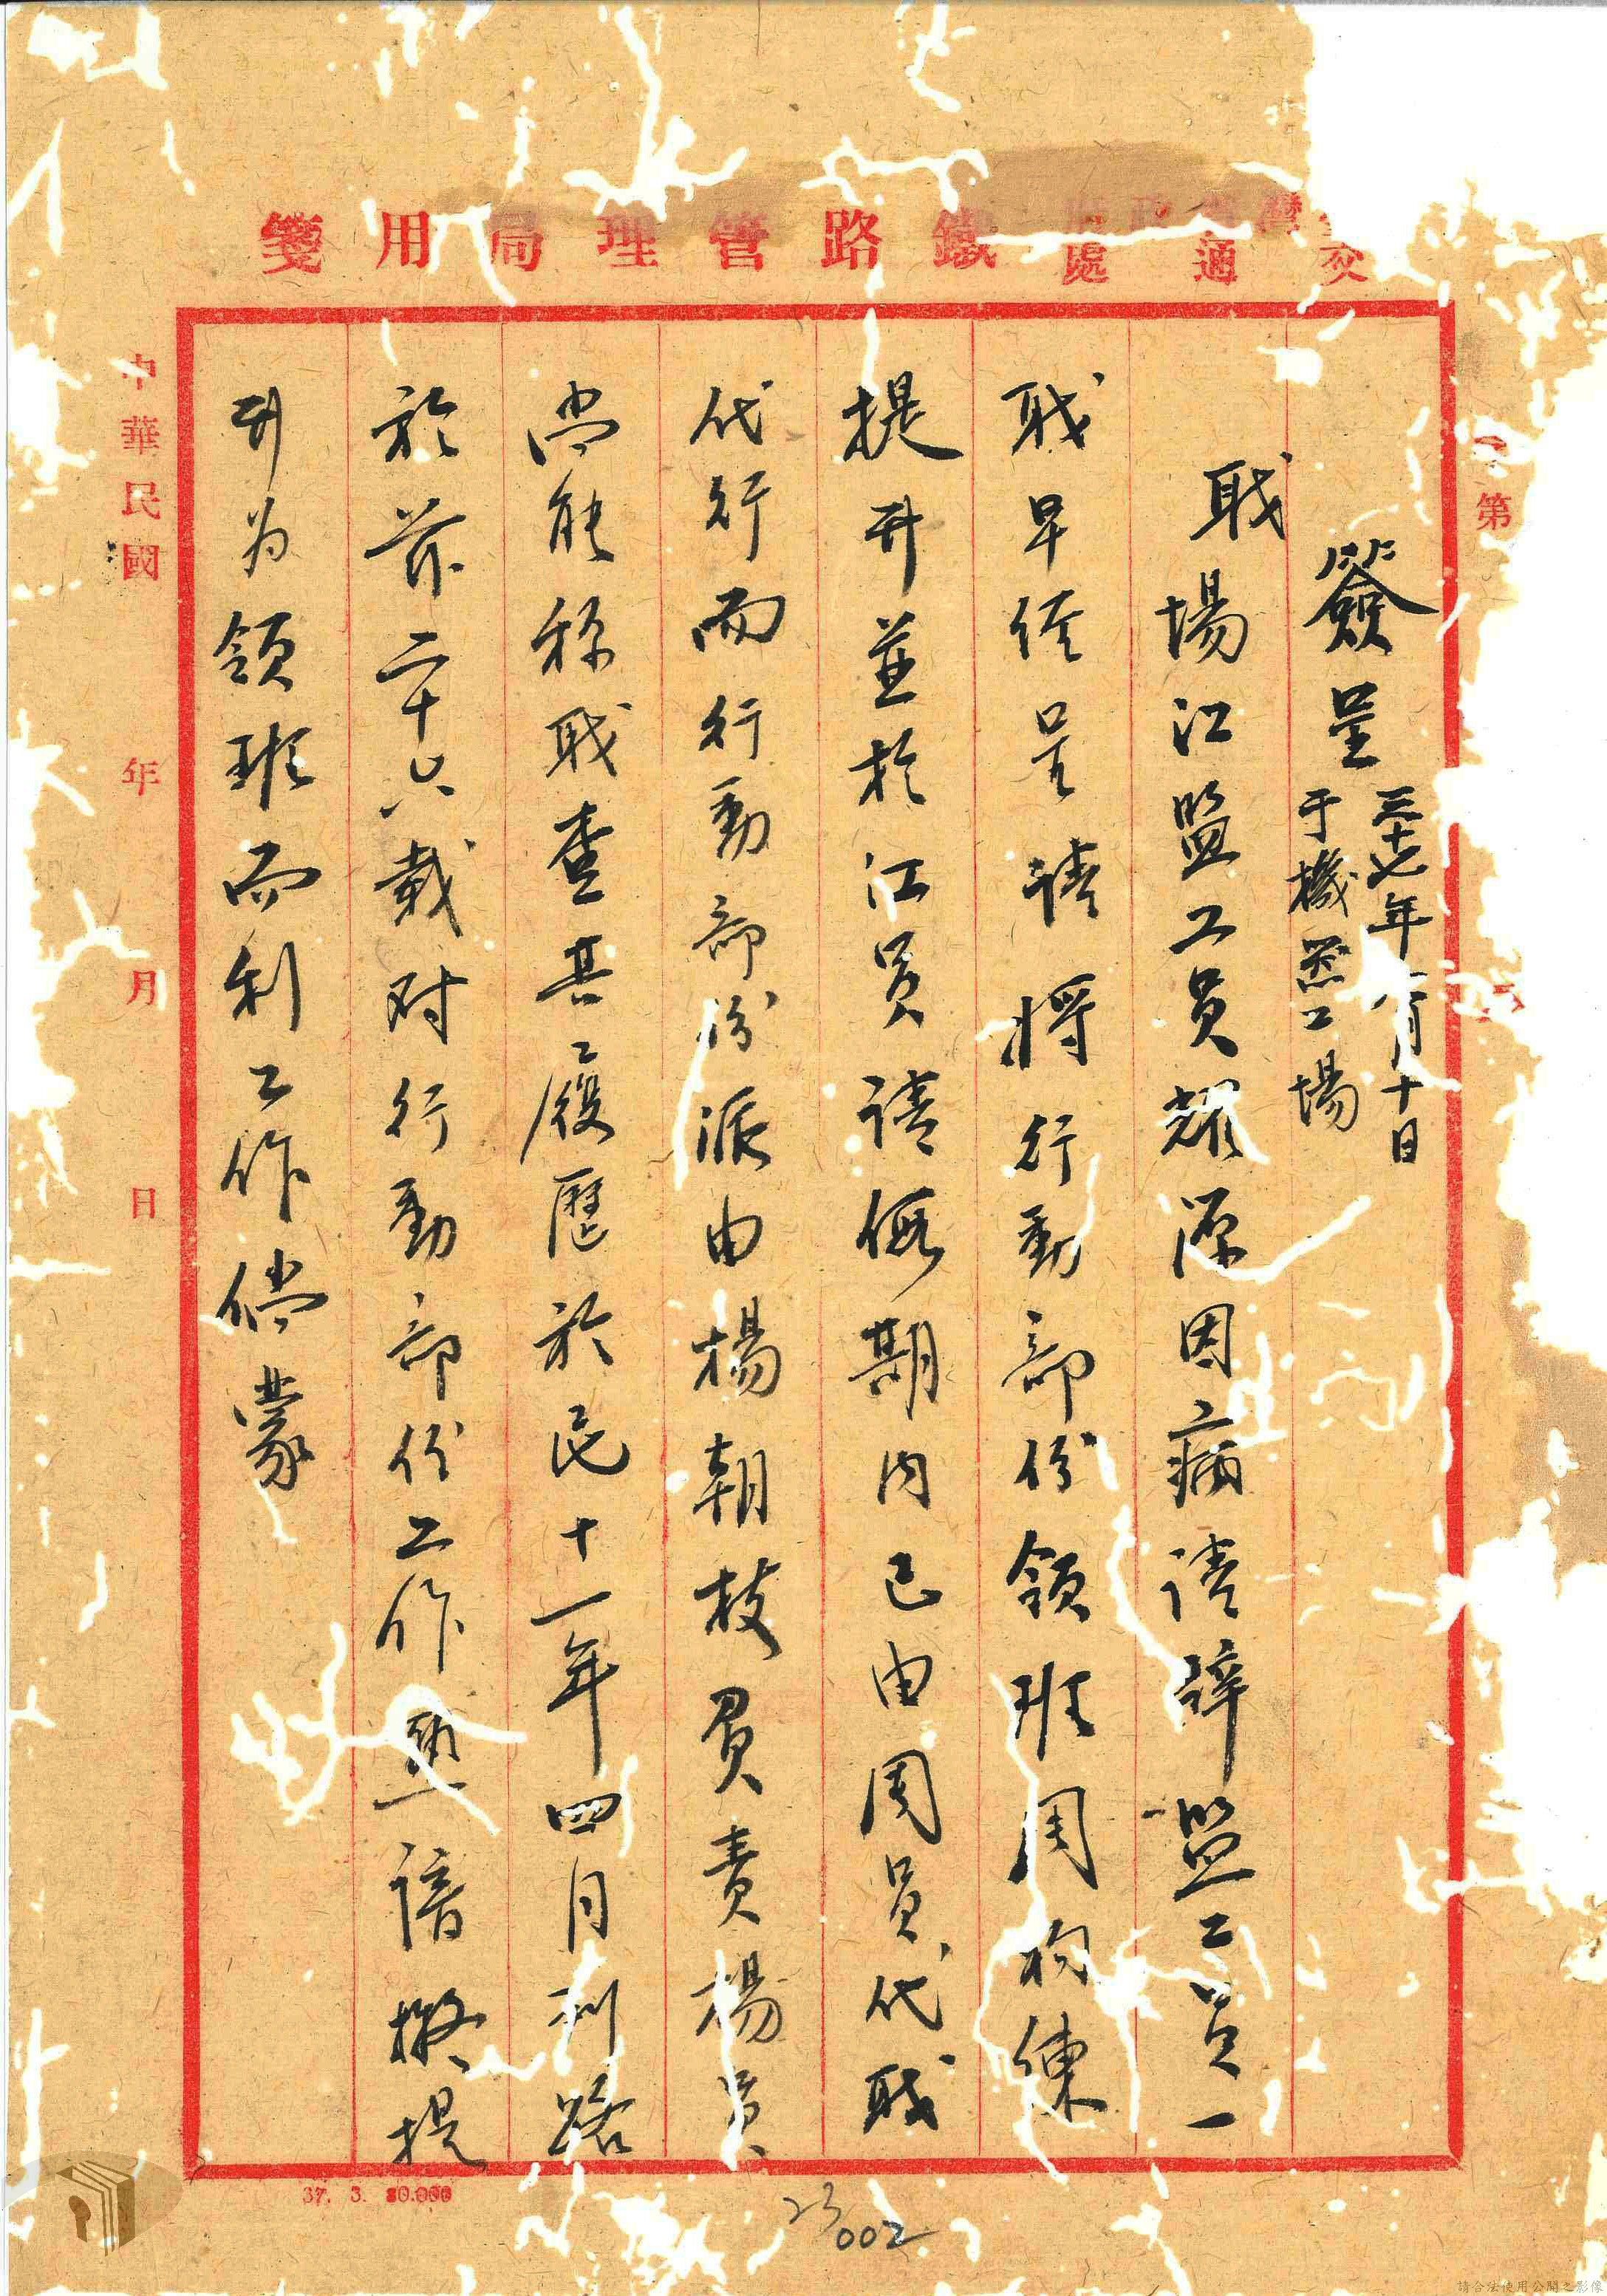 交通處
鐵路管理局用箋
第
簽呈
三十七年 月十日
于機器工場
職場江監工員耀源因病請辭監工員一
職早經呈請將行動部份領班周 練
提升並於江員請假期內已由周員代職
代行而行動部份派由楊朝枝負責楊員
尚能称職查其履歷於民十一年四月到路
於茲二十六載对行動部份工作熟諳擬提
升为領班而利工作倘蒙
中華民國 年 月 日
37. 3. 80.000
23
002
請合法使用公開之影像